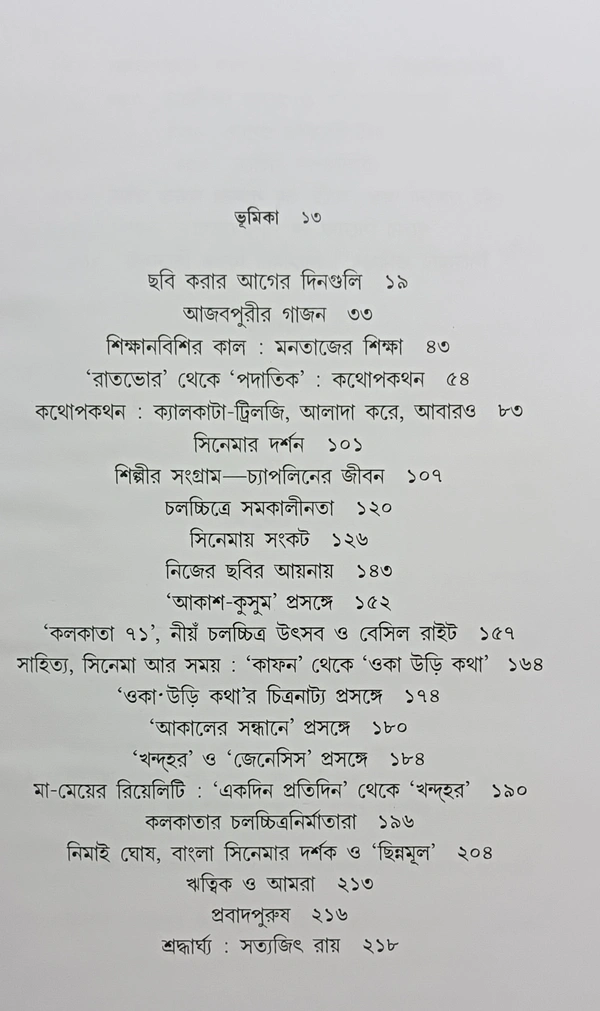 ভূমিকা ১৩
ছবি করার আগের দিনগুলি ১৯
আজবপুরীর গাজন ৩৩
শিক্ষানবিশির কাল : মনতাজের শিক্ষা ৪৩
‘রাতভোর’ থেকে ‘পদাতিক’ : কথোপকথন ৫৪
কথোপকথন : ক্যালকাটা-ট্রিলজি, আলাদা করে, আবারও ৮৩
সিনেমার দর্শন ১০১
শিল্পীর সংগ্রাম—চ্যাপলিনের জীবন ১০৭
চলচ্চিত্রে সমকালীনতা ১২০
সিনেমায় সংকট ১২৬
নিজের ছবির আয়নায় ১৪৩
‘আকাশ-কুসুম’ প্রসঙ্গে ১৫২
‘কলকাতা ৭১’, নীয়ঁ চলচ্চিত্র উৎসব ও বেসিল রাইট ১৫৭
সাহিত্য, সিনেমা আর সময় : ‘কাফন’ থেকে ‘ওকা উড়ি কথা’ ১৬৪
‘ওকা উড়ি কথা’র চিত্রনাট্য প্রসঙ্গে ১৭৪
‘আকালের সন্ধানে’ প্রসঙ্গে ১৮০
‘খন্দহর’ ও ‘জেনেসিস’ প্রসঙ্গে ১৮৪
মা-মেয়ের রিয়েলিটি : ‘একদিন প্রতিদিন’ থেকে ‘খন্দ্হর’ ১৯০
কলকাতার চলচ্চিত্রনির্মাতারা ১৯৬
নিমাই ঘোষ, বাংলা সিনেমার দর্শক ও ‘ছিন্নমূল’ ২০৪
ঋত্বিক ও আমরা ২১৩
প্রবাদপুরুষ ২১৬
শ্রদ্ধার্ঘ্য : সত্যজিৎ রায় ২১৮